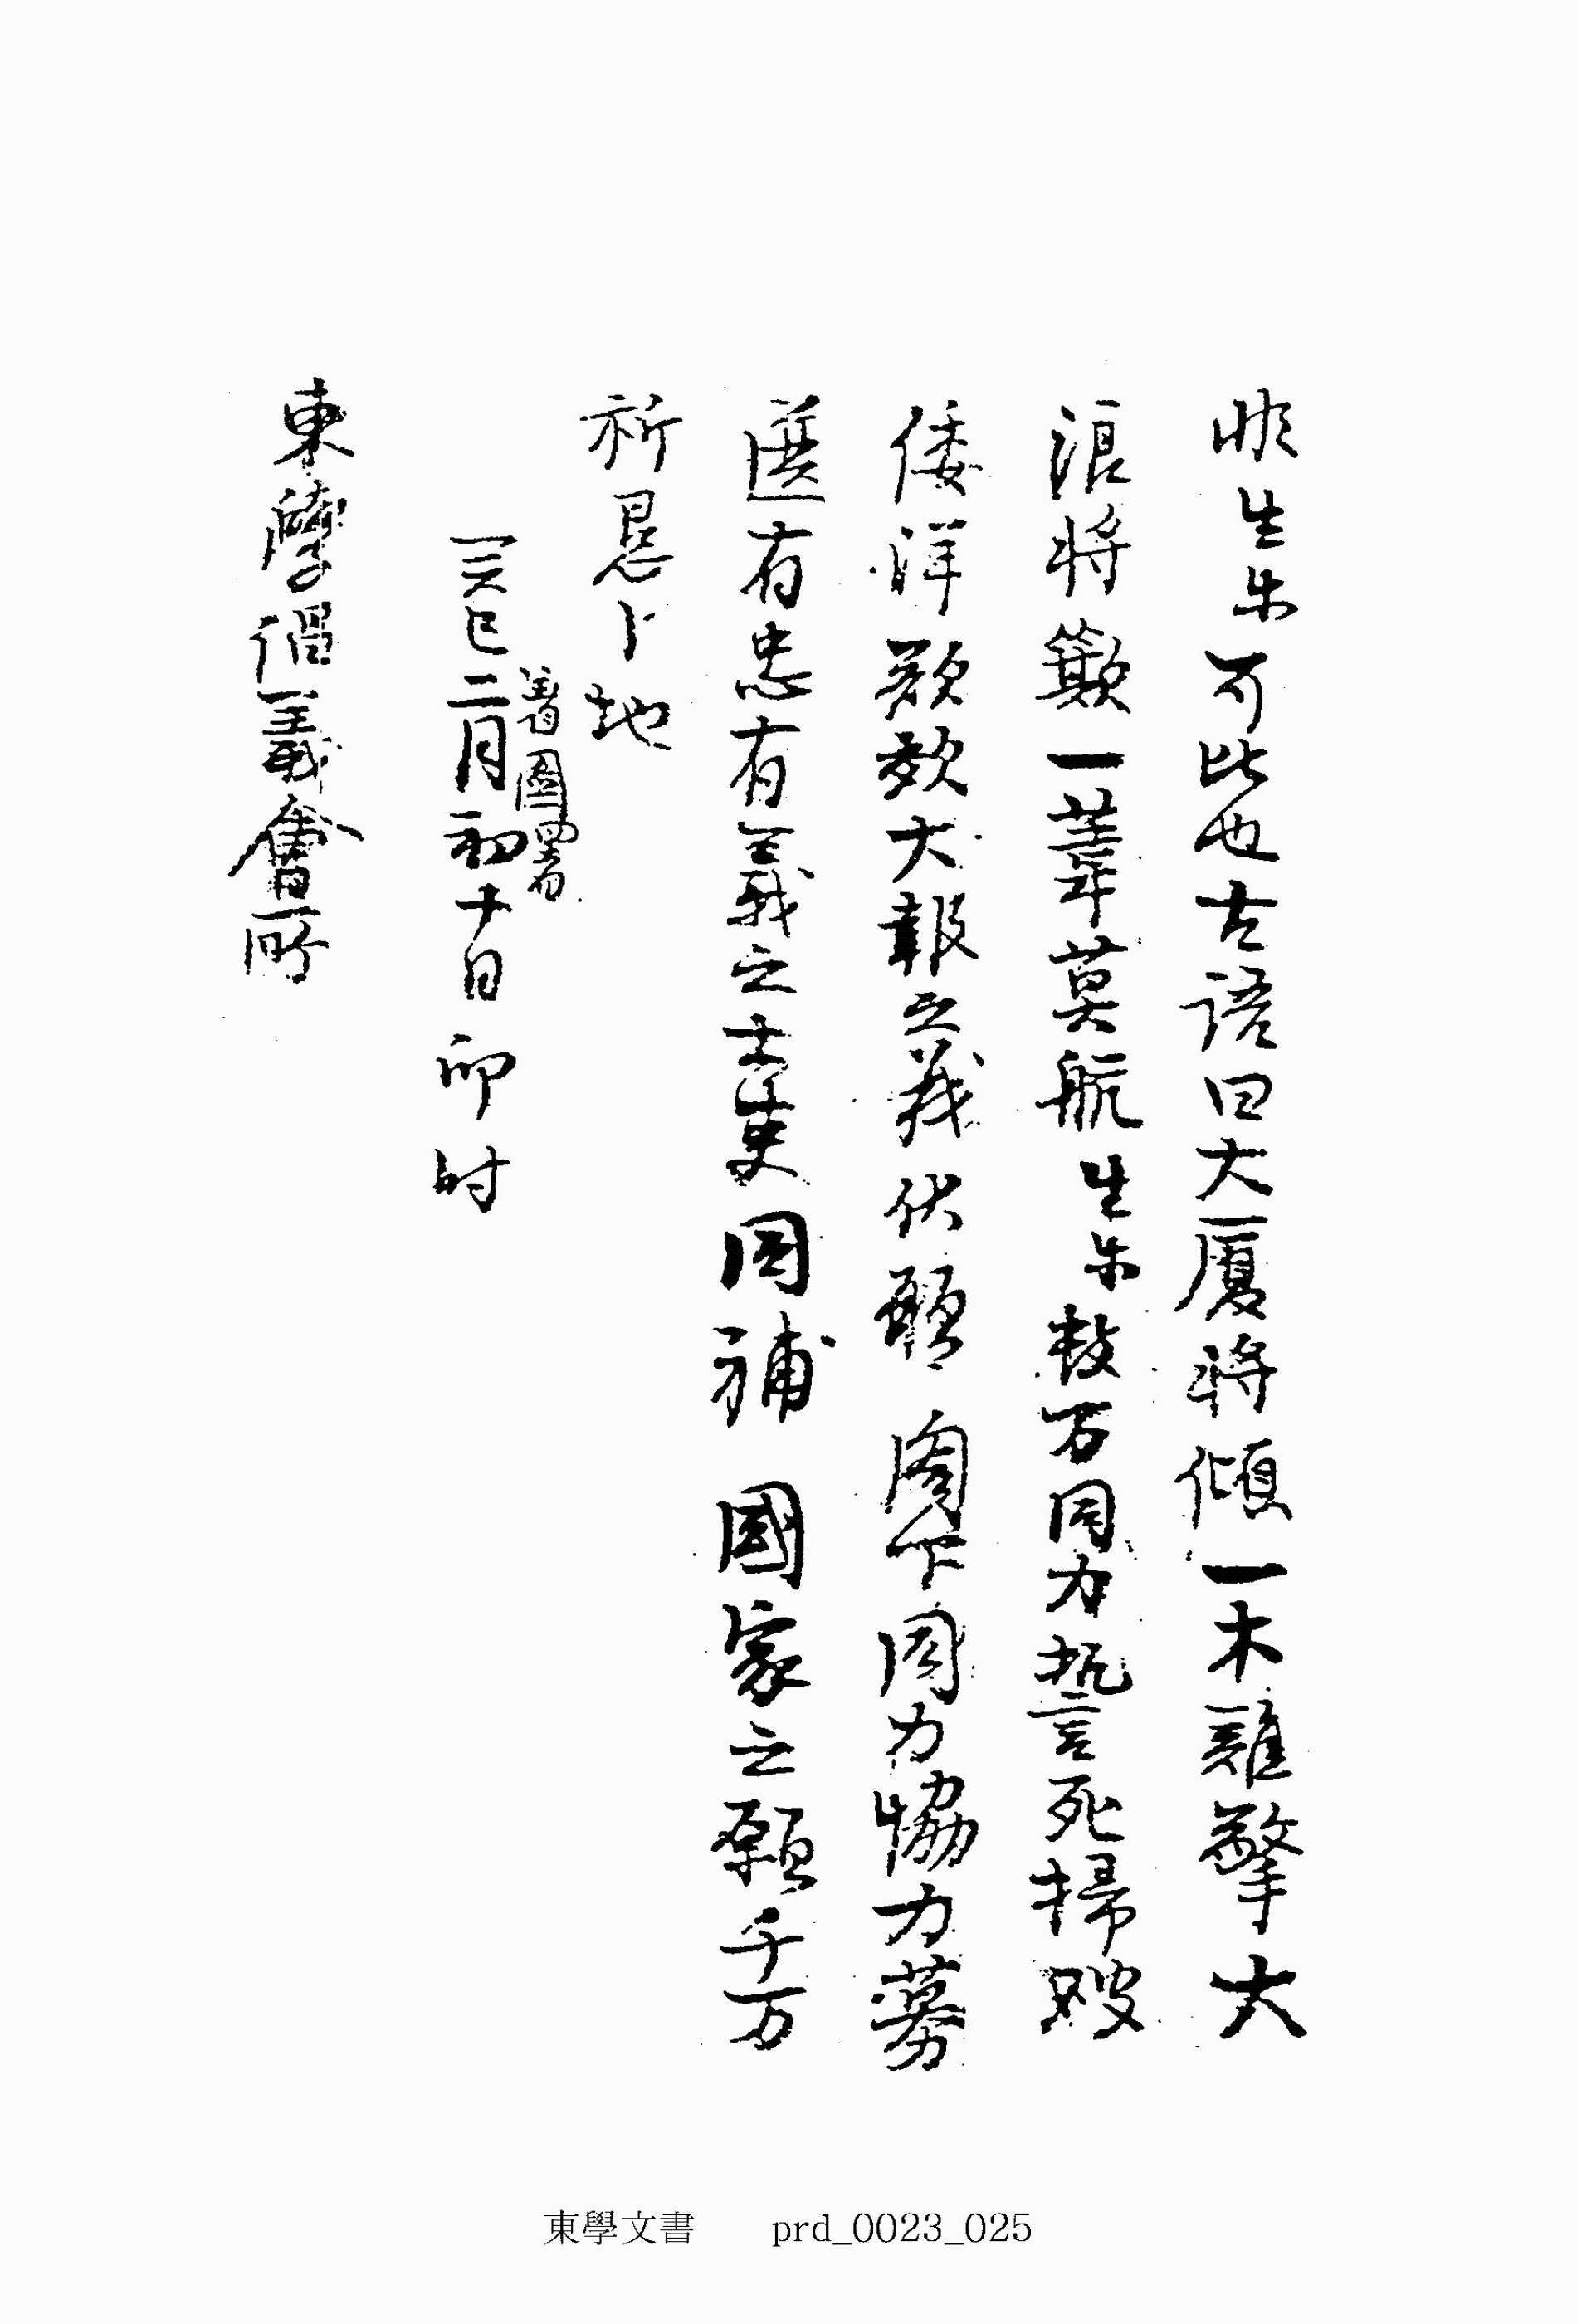 非生等可比也古語曰大厦將傾一木難擎大
浪將簸一葦莫航生等数万同力誓死掃破
倭洋欲效大報之義伏願 閤下同力恊力募
選有忠有義之士吏同補 國家之願千万
祈恳卜地
癸巳三月初十日卯时
着圖署
東學倡義會所
東學文書 prd_0023_025